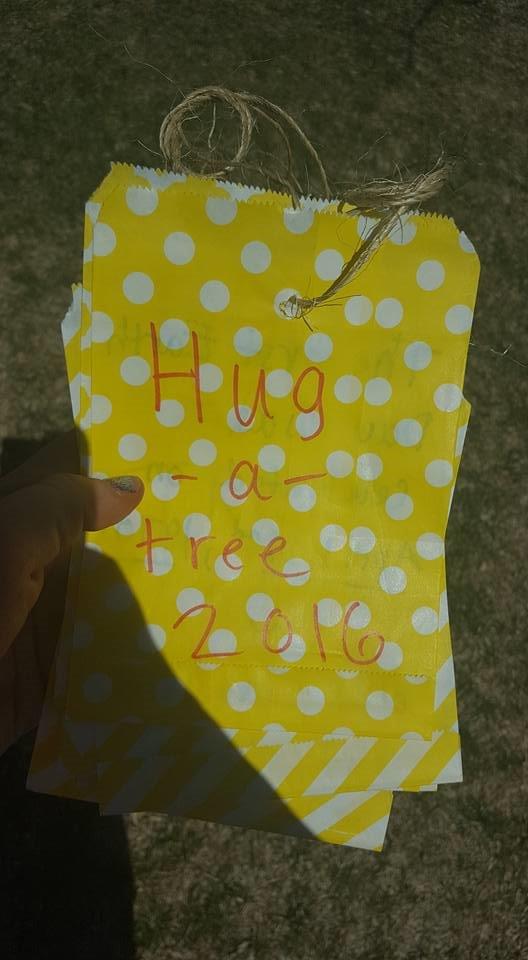 Hug
- a -
tree
2016